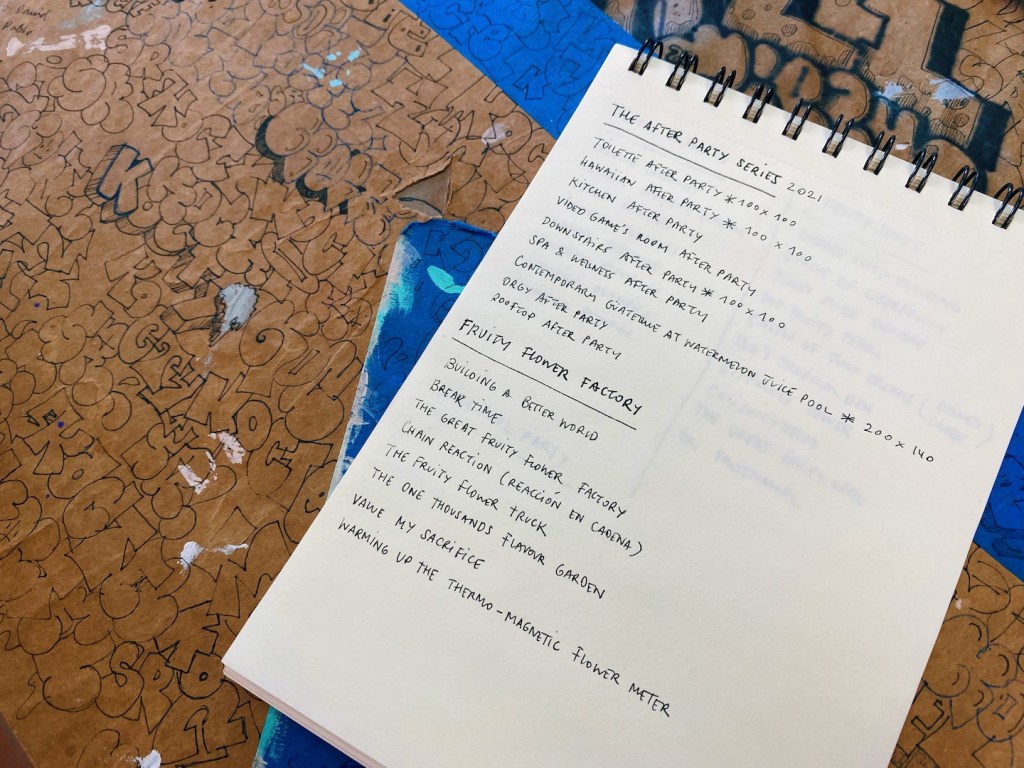 THE AFTER PARTY SERIES 2021
TOILETTE AFTER PARTY * 100 x 100
HAWAIIAN AFTER PARTY * 100 x 100
KITCHEN AFTER PARTY
VIDEO GAME'S ROOM AFTER PARTY
DOWNSTAIRS AFTER PARTY * 100 x 100
SPA & WELLNESS AFTER PARTY
CONTEMPORARY GÜATEQUE AT WATERMELON JUICE POOL * 200 x 140
ORGY AFTER PARTY
ROOFTOP AFTER PARTY
FRUITY FLOWER FACTORY
BUILDING A BETTER WORLD
BREAK TIME
THE GREAT FRUITY FLOWER FACTORY
CHAIN REACTION (REACCIÓN EN CADENA)
THE FRUITY FLOWER TRUCK
THE ONE THOUSANDS FLAVOUR GARDEN
VALUE MY SACRIFICE
WARMING UP THE THERMO-MAGNETIC FLOWER METER